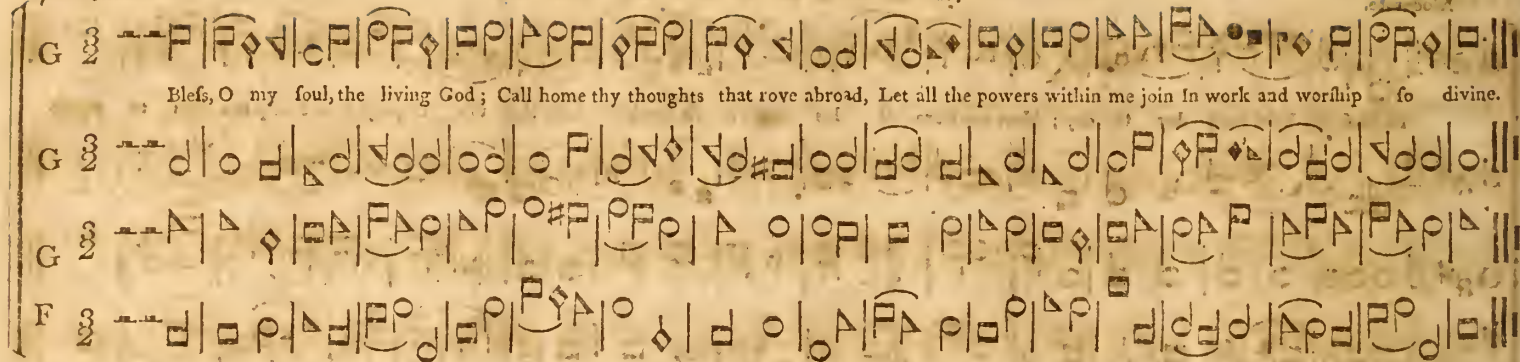 G 3 2
Bleſs, O my ſoul, the living God; Call home thy thoughts that rove abroad, Let all the powers within me join In work and worſhip ſo divine.
G 3 2
G 3 2
F 3 2